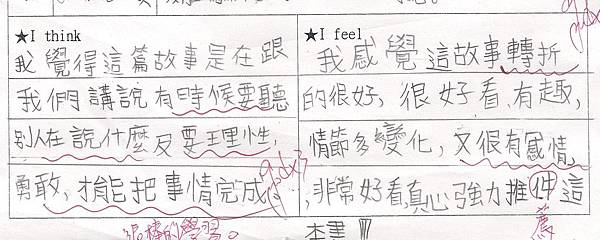 ★I think
我覺得這篇故事是在跟
我們講說有時候要聽
別人在說什麼及要理性,
勇敢,才能把事情完成。
很棒的學習。
★I feel
我感覺這故事轉折
的很好,很好看、有趣,
情節多變化,又很有感情
,非常好看,真心強力推件這
薦
本書!!!